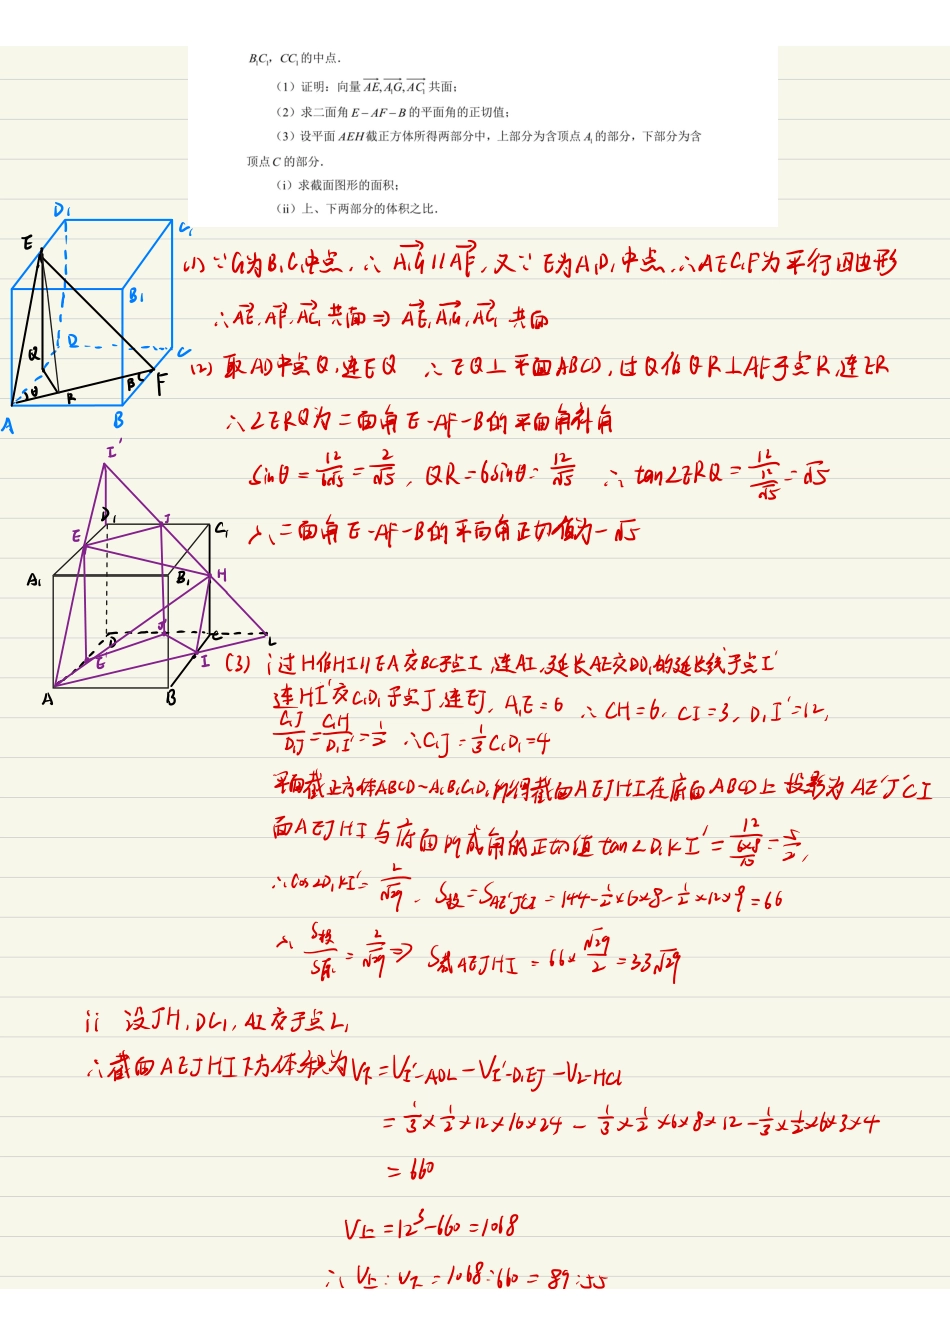 B₁C₁，CC₁的中点．
（1）证明：向量 AE, A₁G, AC₁ 共面；
（2）求二面角 E－AF－B 的平面角的正切值；
（3）设平面 AEH 截正方体所得两部分中，上部分为含顶点 A₁ 的部分，下部分为含
顶点 C 的部分．
（i）求截面图形的面积；
（ii）上、下两部分的体积之比．
D₁
C₁
E
B₁
Q
D
C
θ
R
F
A
B
(1) ∵G为B₁C₁中点，∴ A₁G // AF，又∵ E为A₁D₁中点，∴AEC₁F为平行四边形
∴AE, AF, AC₁共面⇒ AE, A₁G, AC₁ 共面
(2) 取AD中点Q，连EQ ∴EQ⊥平面ABCD，过Q作QR⊥AF于点R，连ER
∴∠ERQ为二面角E-AF-B的平面角补角
sinθ = 12/6√5 = 2/√5，QR=6sinθ= 12/√5 ∴ tan∠ERQ = 12/(12/√5) = √5
∴二面角E-AF-B的平面角正切值为-√5
I′
D₁
J
C₁
E
A₁
B₁
H
D
J′
C
L
E′
I
A
B
(3) i 过H作HI//EA交BC于点I，连AI，延长AE交DD₁的延长线于点I′
连HI′交C₁D₁于点J，连EJ，A₁E=6 ∴CH=6，CI=3，D₁I′=12，
C₁J/D₁J = C₁H/D₁I′ = 1/2 ∴C₁J = 1/3 C₁D₁=4
平面截正方体ABCD-A₁B₁C₁D₁所得截面AEJHI在底面ABCD上投影为AE′J′CI
面AEJHI与底面所成角的正切值tan∠D₁KI′ = 12/(6×8/10) = 5/2，
∴cos∠D₁KI′= 2/√29，S投=S AE′J′CI = 144-1/2×6×8-1/2×12×9=66
∴ S投/S原 = 2/√29 ⇒ S截AEJHI = 66×√29/2 = 33√29
ii 设JH, DC, AI交于点L，
∴截面AEJHI下方体积为V下=V I′-ADL - V I′-D₁EJ - V L-HCI
= 1/3×1/2×12×16×24 - 1/3×1/2×6×8×12 - 1/3×1/2×6×3×4
= 660
V上=12³-660=1068
∴ V上:V下=1068:660=89:55